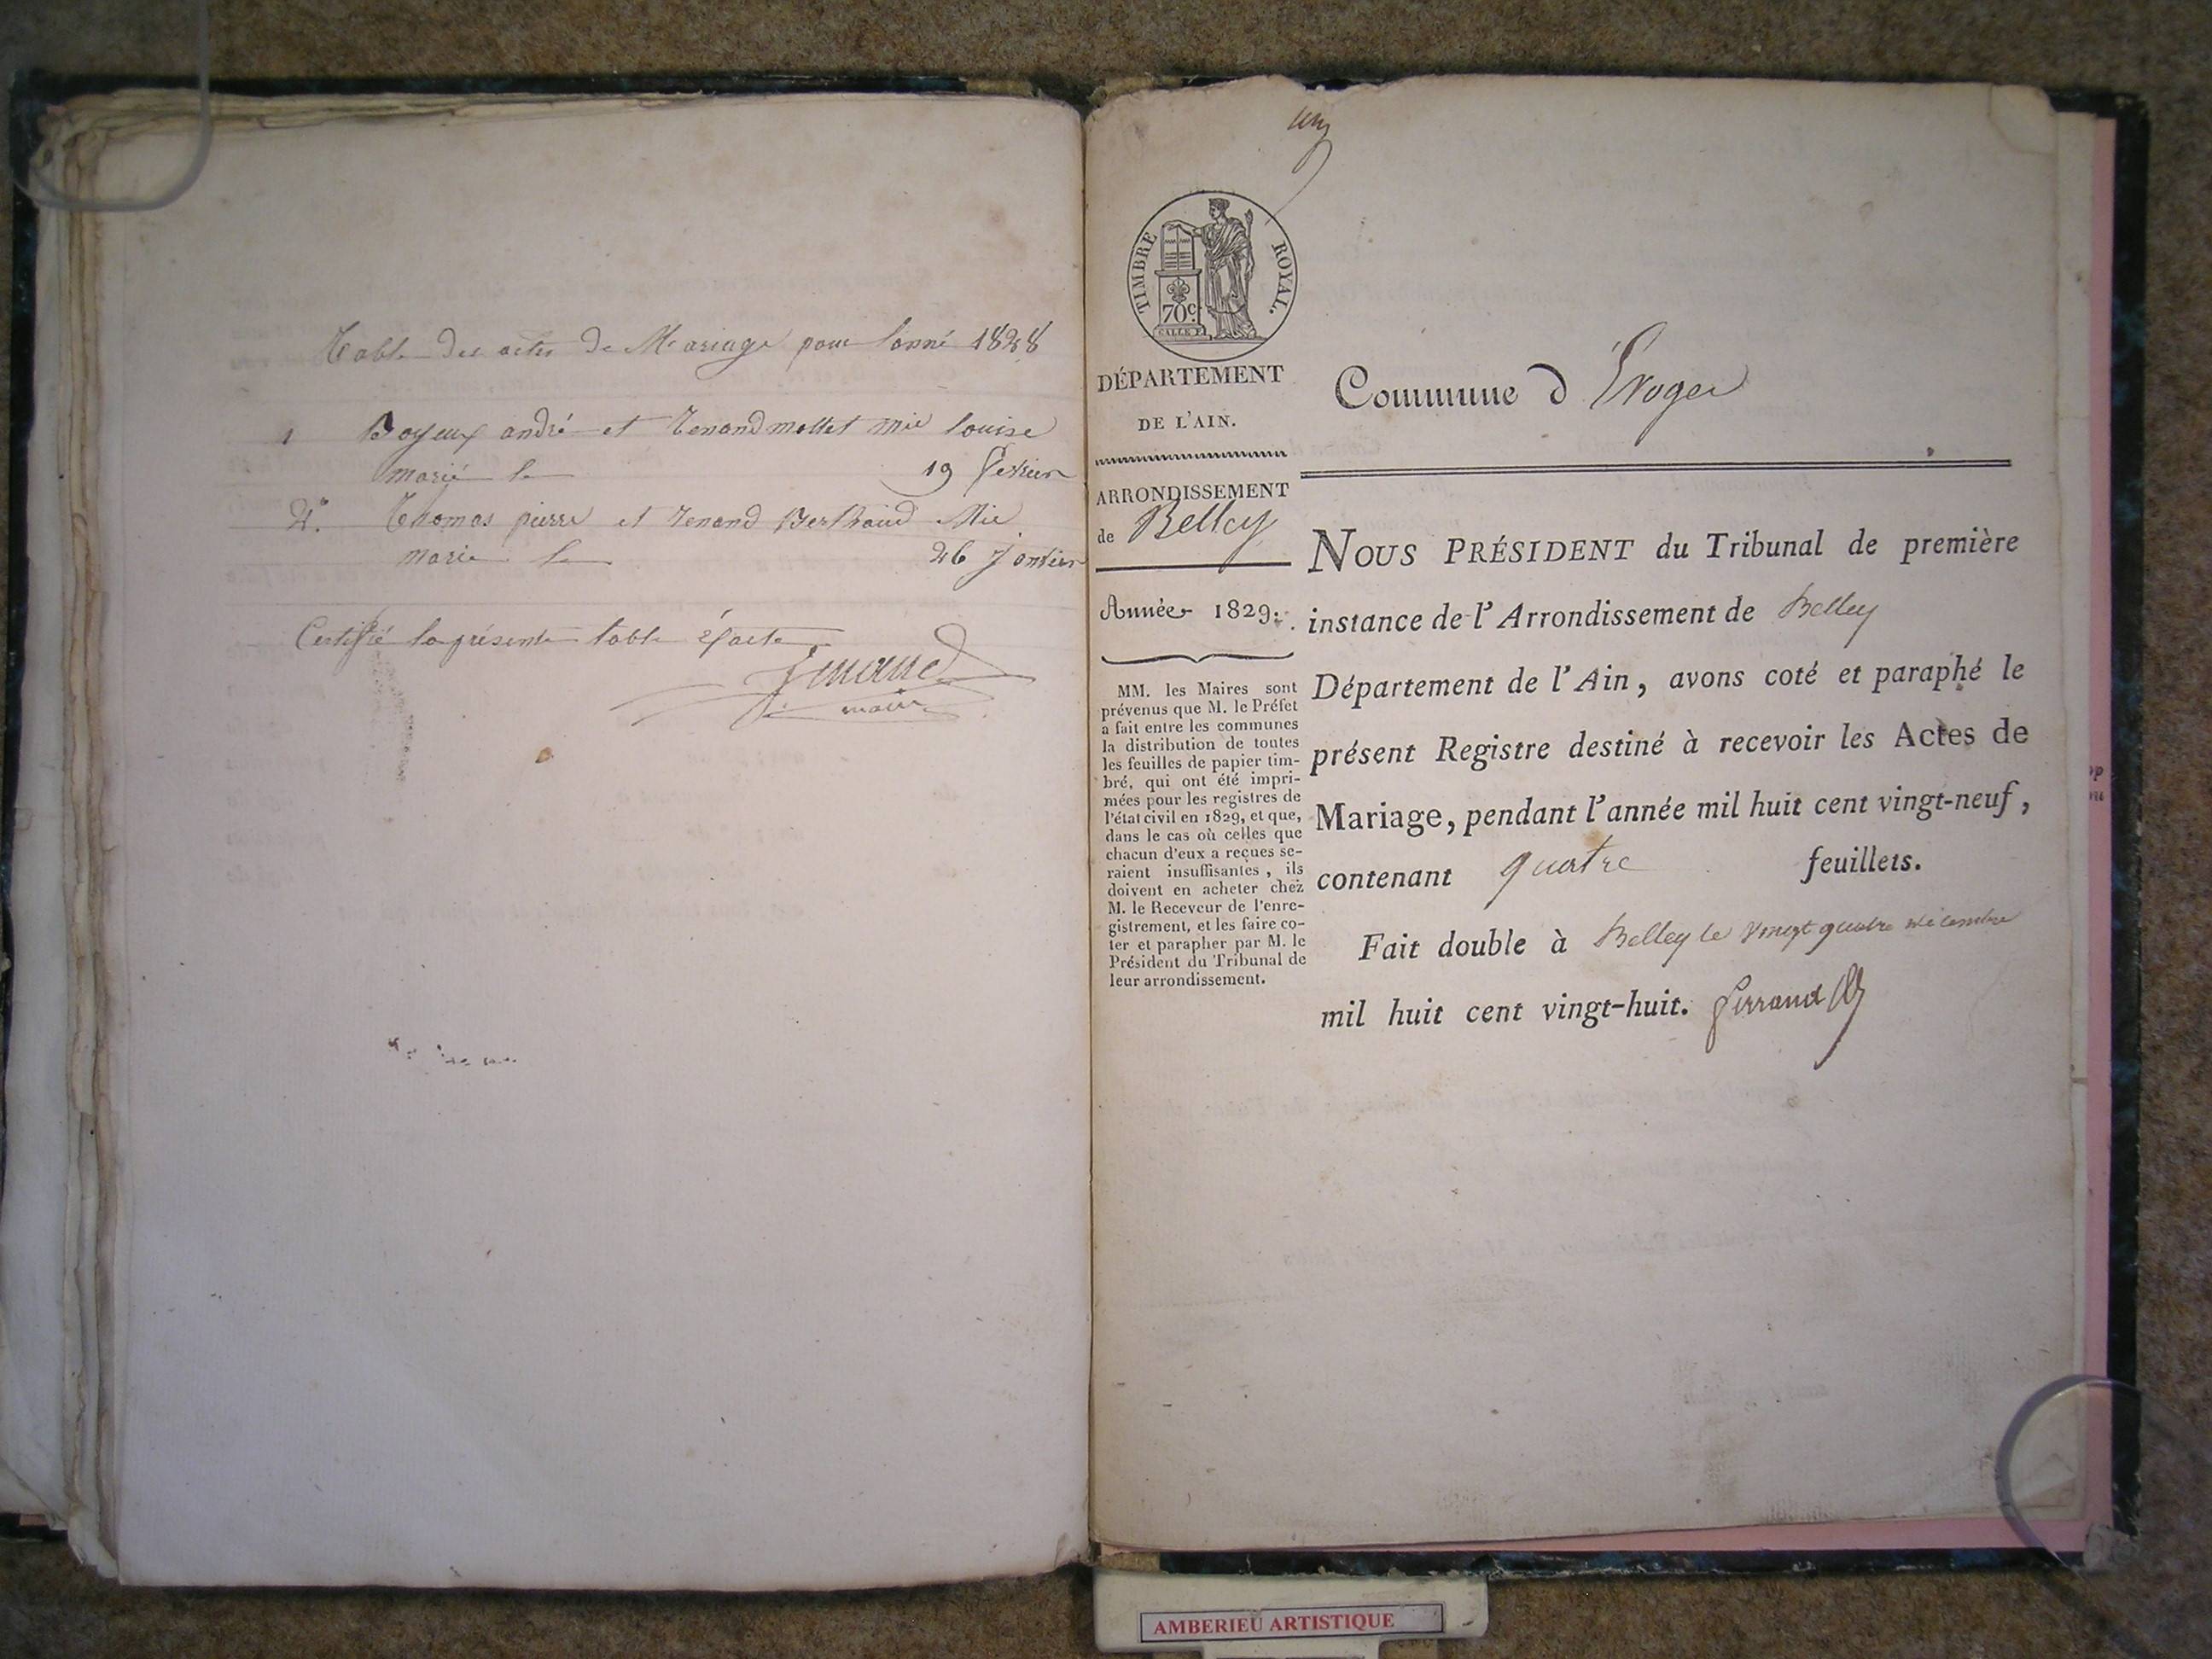 Table des actes de Mariage pour lanné 1828
1 Boyeux andré et Tenand mollet Mie louise
marié le 19 fevrier
2. Thomas pierre et Tenand Berthaud Mie
marie le 26 Janvier
Certifié la présente table éxacte
Tenand
maire
un
TIMBRE ROYAL.
70c.
DÉPARTEMENT
DE L'AIN.
ARRONDISSEMENT
de Belley
Année 1829.
MM. les Maires sont
prévenus que M. le Préfet
a fait entre les communes
la distribution de toutes
les feuilles de papier tim-
bré, qui ont été impri-
mées pour les registres de
l'état civil en 1829, et que,
dans le cas où celles que
chacun d'eux a reçues se-
raient insuffisantes, ils
doivent en acheter chez
M. le Receveur de l'enre-
gistrement, et les faire co-
ter et parapher par M. le
Président du Tribunal de
leur arrondissement.
Commune d'Evoges
NOUS PRÉSIDENT du Tribunal de première
instance de l'Arrondissement de Belley
Département de l'Ain, avons coté et paraphé le
présent Registre destiné à recevoir les Actes de
Mariage, pendant l'année mil huit cent vingt-neuf,
contenant quatre feuillets.
Fait double à Belley le vingt quatre décembre
mil huit cent vingt-huit. Perrand
AMBERIEU ARTISTIQUE